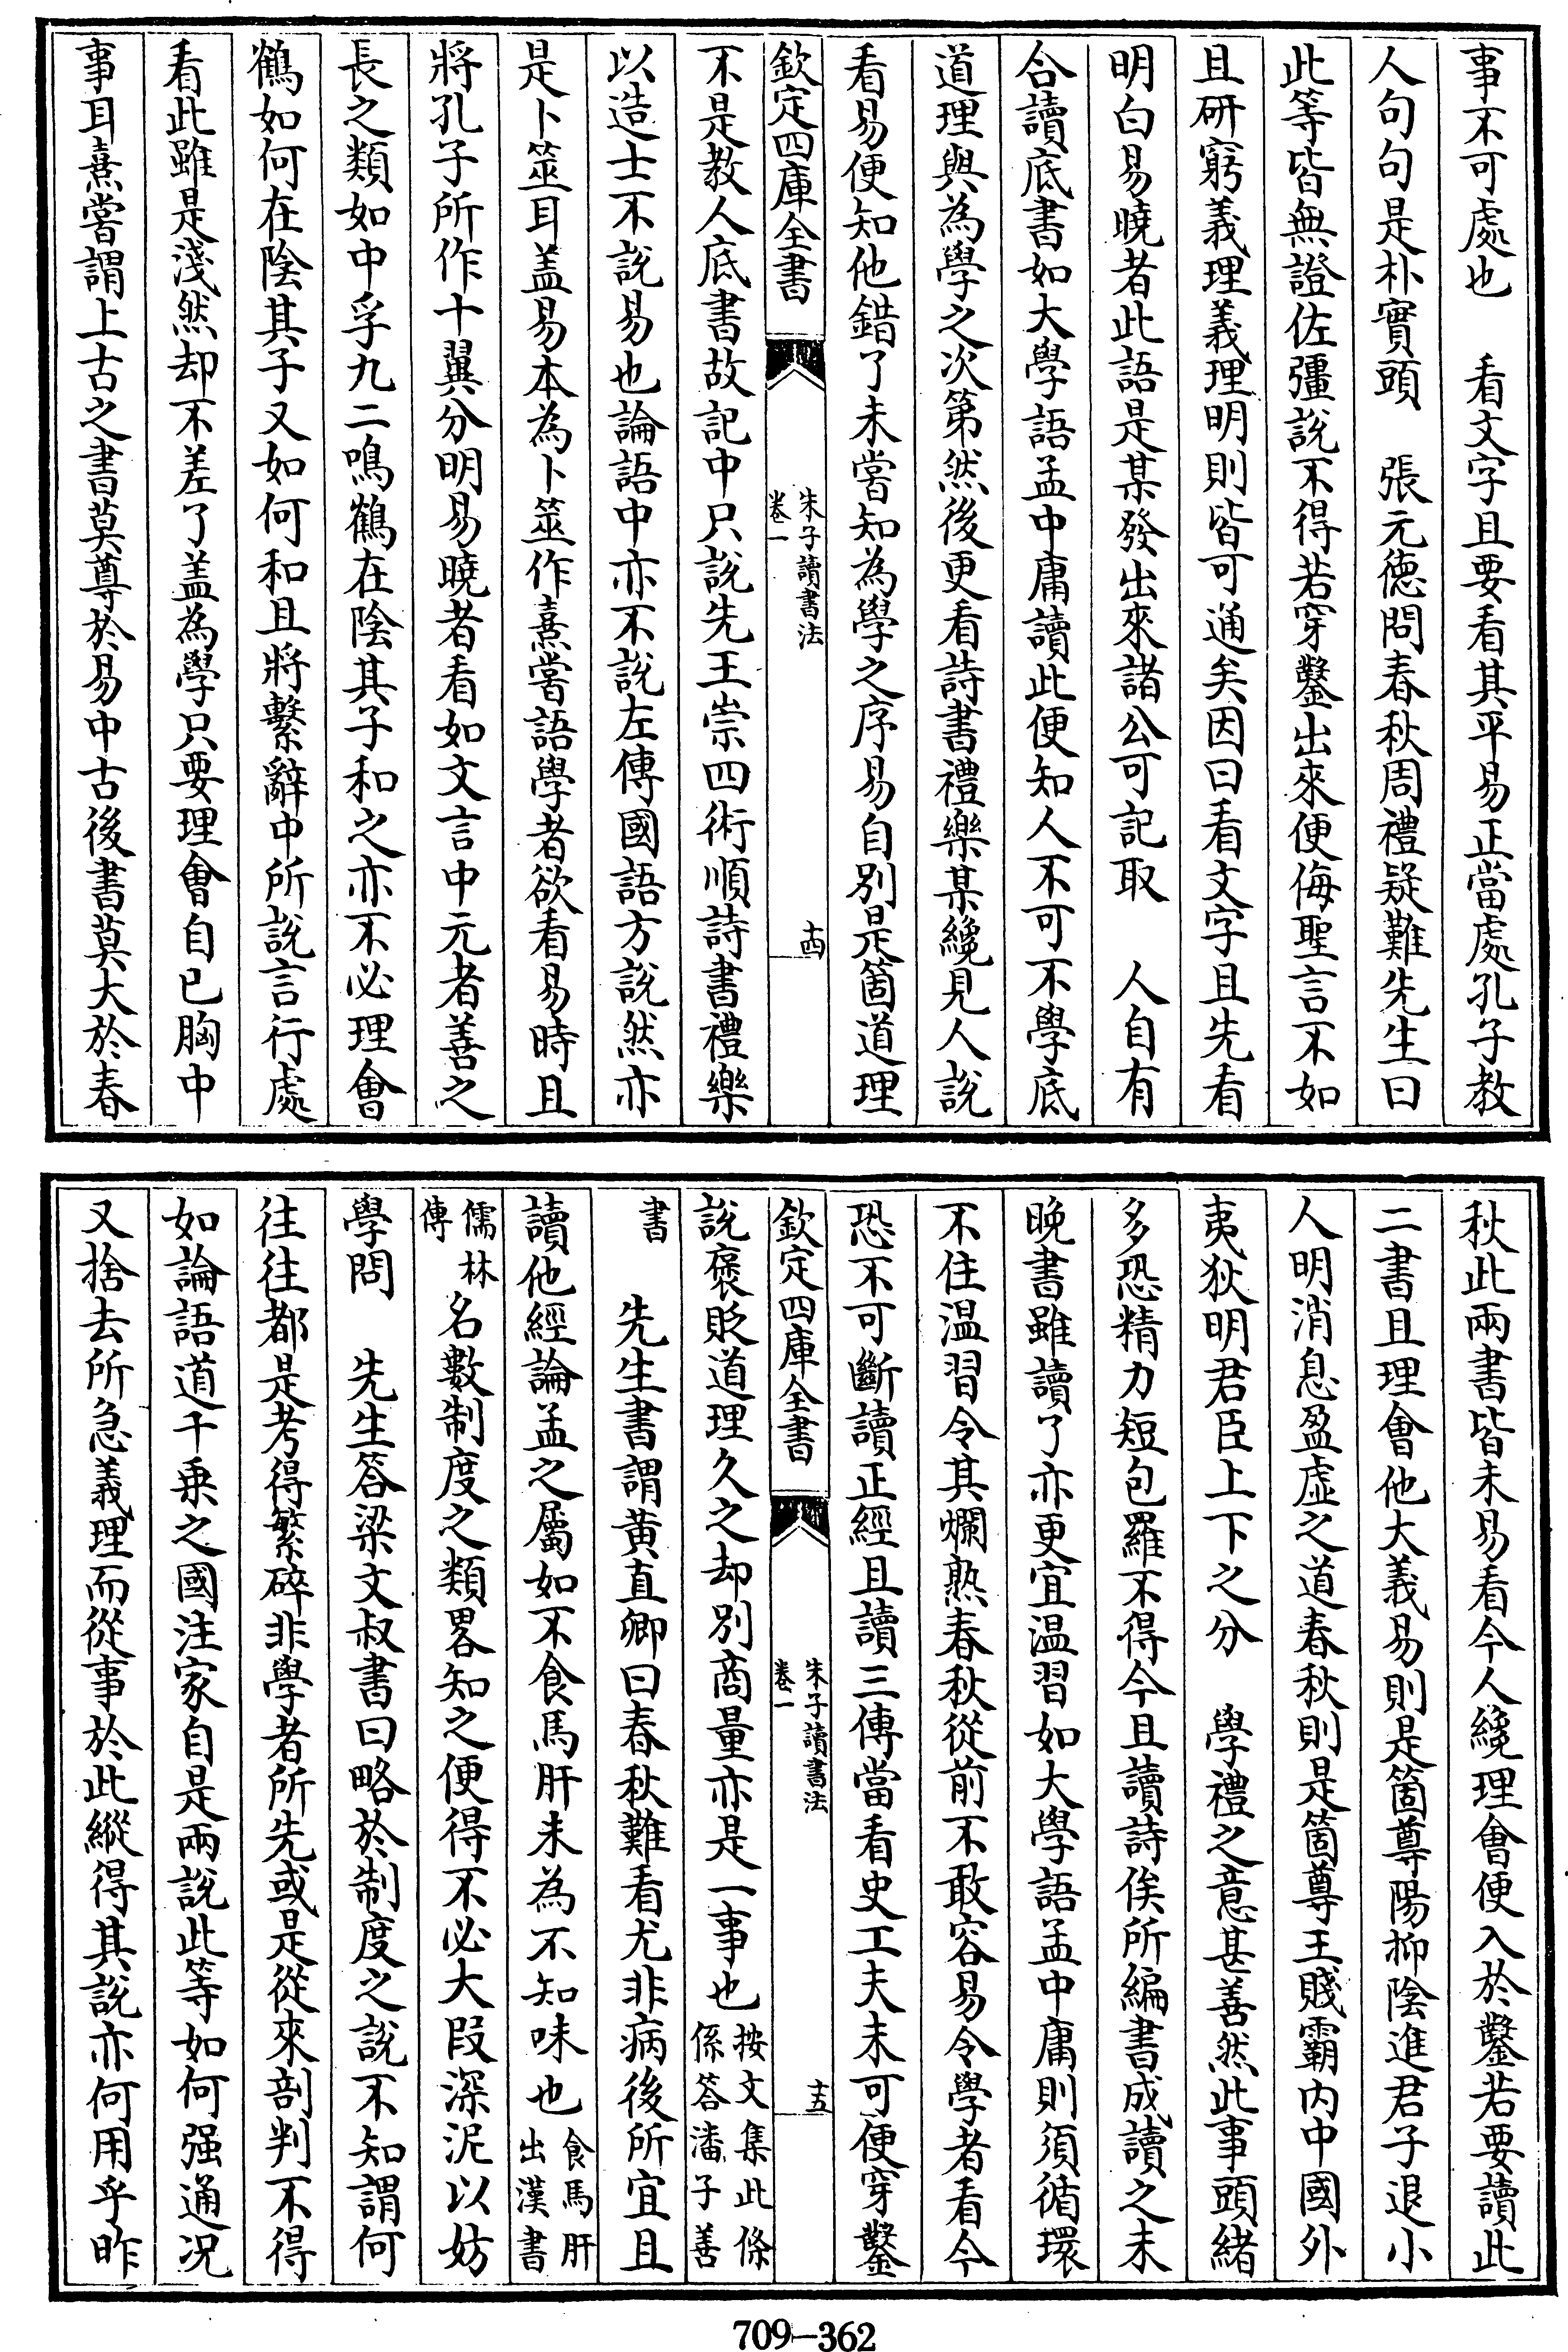 事不可處也　看文字且要看其平易正當處孔子教
人句句是朴實頭　張元徳問春秋周禮疑難先生曰
此等皆無證佐彊説不得若穿鑿出來便侮聖言不如
且研窮義理義理明則皆可通矣因曰看文字且先看
明白易曉者此語是某發出來諸公可記取　人自有
合讀底書如大學語孟中庸讀此便知人不可不學底
道理與為學之次第然後更看詩書禮樂某纔見人説
看易便知他錯了未嘗知為學之序易自別是箇道理
欽定四庫全書
朱子讀書法
卷一
十四
不是教人底書故記中只説先王崇四術順詩書禮樂
以造士不説易也論語中亦不説左傳國語方説然亦
是卜筮耳盖易本為卜筮作熹嘗語學者欲看易時且
將孔子所作十翼分明易曉者看如文言中元者善之
長之類如中孚九二鳴鶴在陰其子和之亦不必理會
鶴如何在陰其子又如何和且將繫辭中所説言行處
看此雖是淺然却不差了盖為學只要理會自已胸中
事耳熹嘗謂上古之書莫尊於易中古後書莫大於春
秋此兩書皆未易看今人纔理會便入於鑿若要讀此
二書且理會他大義易則是箇尊陽抑陰進君子退小
人明消息盈虚之道春秋則是箇尊王賤霸内中國外
夷狄明君臣上下之分　學禮之意甚善然此事頭緒
多恐精力短包羅不得今且讀詩俟所編書成讀之未
晚書雖讀了亦更宜温習如大學語孟中庸則須循環
不住温習令其爛熟春秋從前不敢容易令學者看今
恐不可斷讀正經且讀三傳當看史工夫未可便穿鑿
欽定四庫全書
朱子讀書法
卷一
十五
説褒貶道理久之却別商量亦是一事也按文集此條係答潘子善
書　先生書謂黄直卿曰春秋難看尤非病後所宜且
讀他經論孟之屬如不食馬肝未為不知味也食馬肝出漢書
儒林傳名數制度之類畧知之便得不必大段深泥以妨
學問　先生答梁文叔書曰略於制度之説不知謂何
往往都是考得繁碎非學者所先或是從來剖判不得
如論語道千乗之國注家自是兩説此等如何强通况
又捨去所急義理而從事於此縱得其説亦何用乎昨
709-362